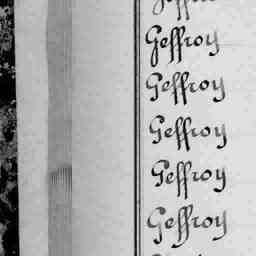 Geffroy
Geffroy
Geffroy
Geffroy
Geffroy